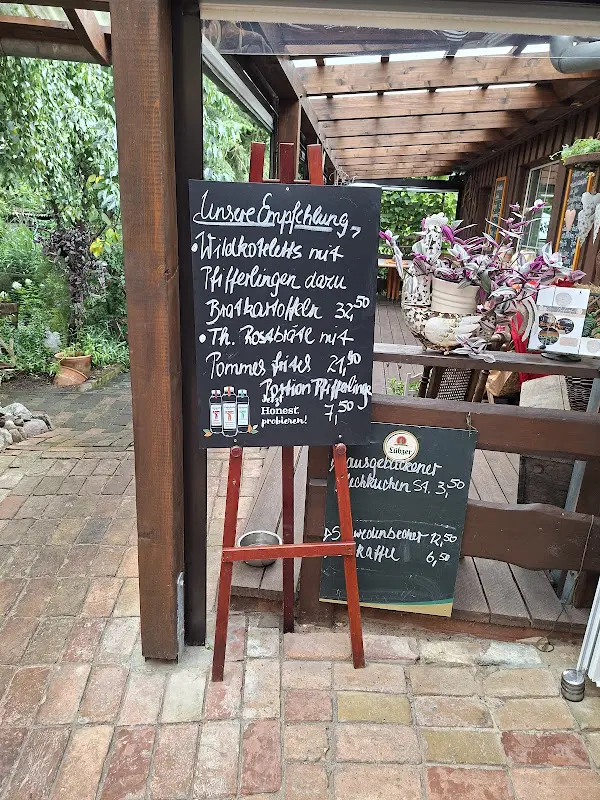 Unsere Empfehlung
• Wildkoteletts mit
Pfifferlingen dazu
Bratkartoffeln 32,50
• Th. Rostbräte mit
Pommes frites 21,90
Portion Pfifferlinge
7,50
Jetzt
Honest
probieren!
Lübzer
ausgebackener
chkuchen St. 3,50
wedenbecher 12,50
Kaffee 6,50